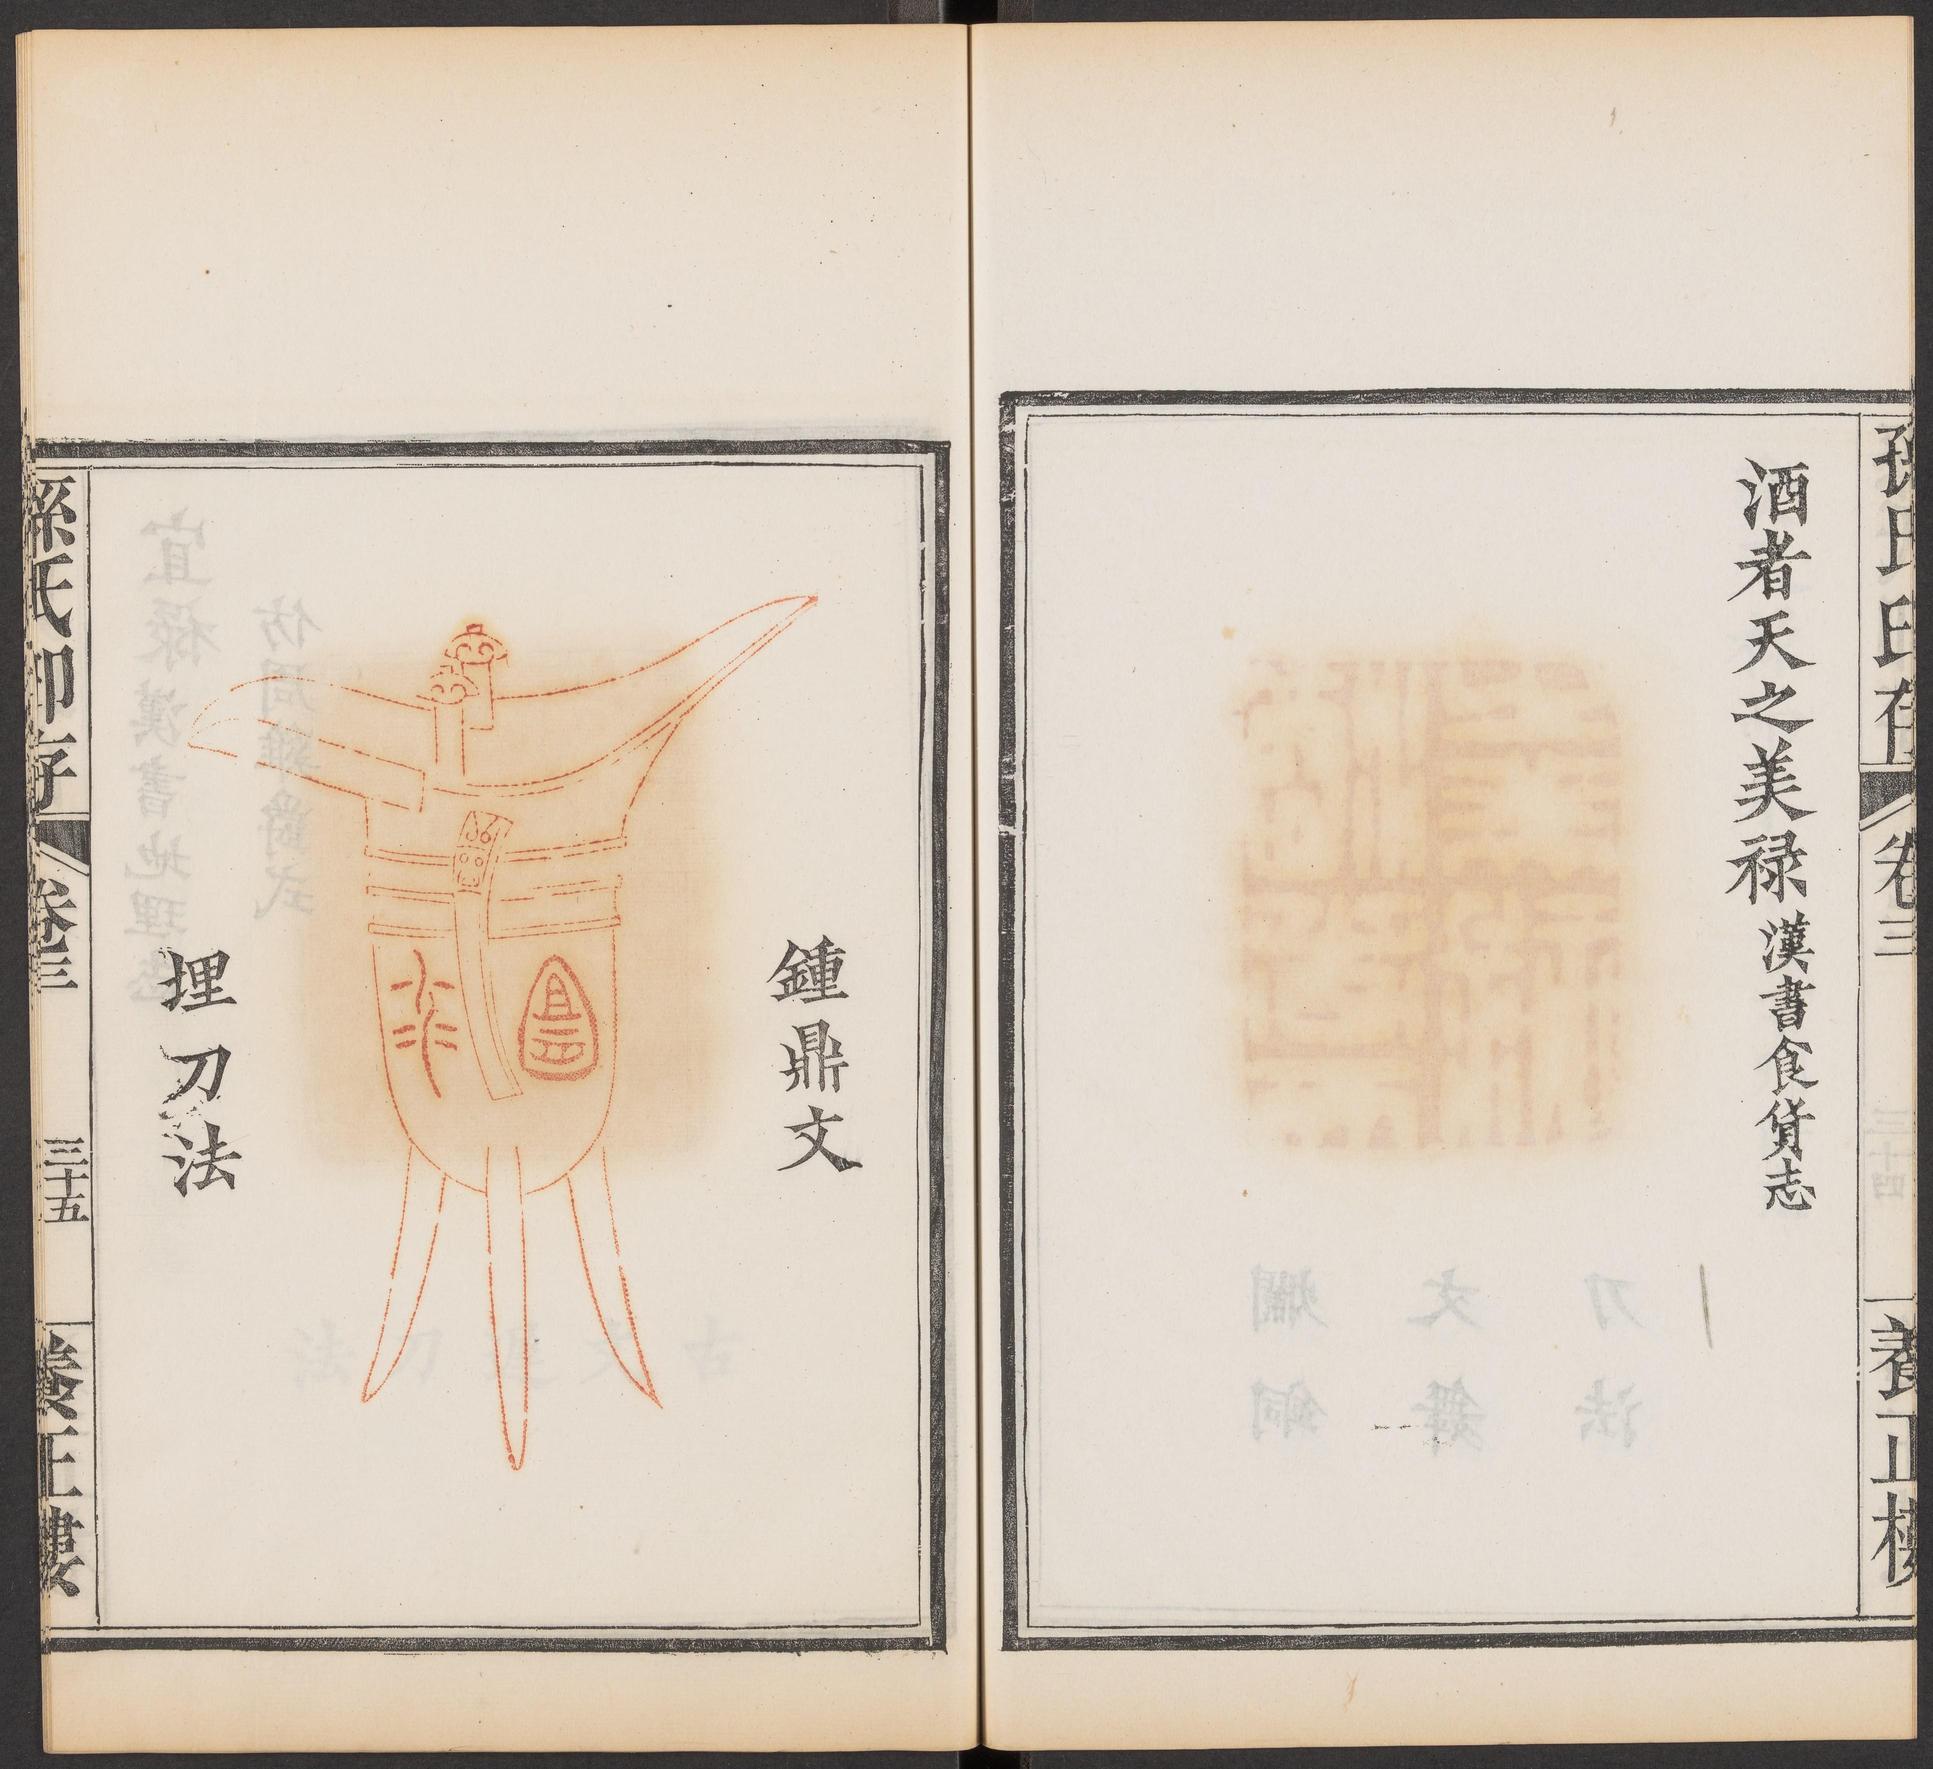 孫氏印存
卷三
養正樓
酒者天之美祿漢書食貨志
鍾鼎文
宜
埋刀法
孫氏印存
卷三
三十五
養正樓